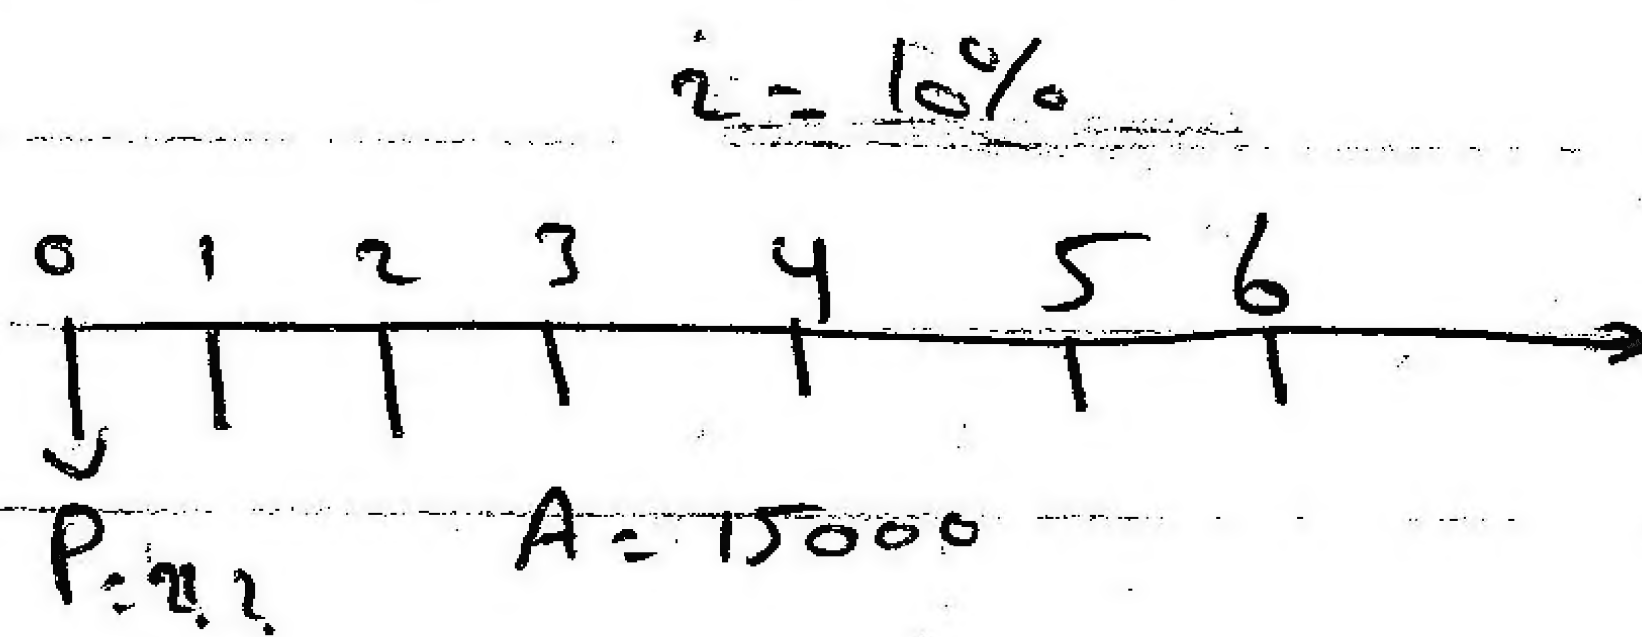 i = 10%
0 1 2 3 4 5 6
P = ?? A = 15000